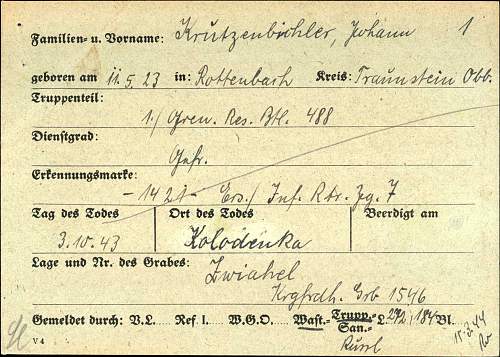 Familien- u. Vorname: Krutzenbichler, Johann 1
geboren am 11.5.23 in: Rottenbach Kreis: Traunstein Obb.
Truppenteil:
1./ Gren. Res. Btl. 488
Dienstgrad:
Gefr.
Erkennungsmarke:
- 1421 - Ers./ Inf. Rtr. Zg. 7
Tag des Todes Ort des Todes Beerdigt am
3.10.43 Kolodenka
Lage und Nr. des Grabes: Zwiahel
Krgfrdh. Grb 1546
Gemeldet durch: V.L. Ref I. W.G.O. Wast.- Trupp.- San.- L. 292/184 Bl.
V 4 Russl 15.3.44